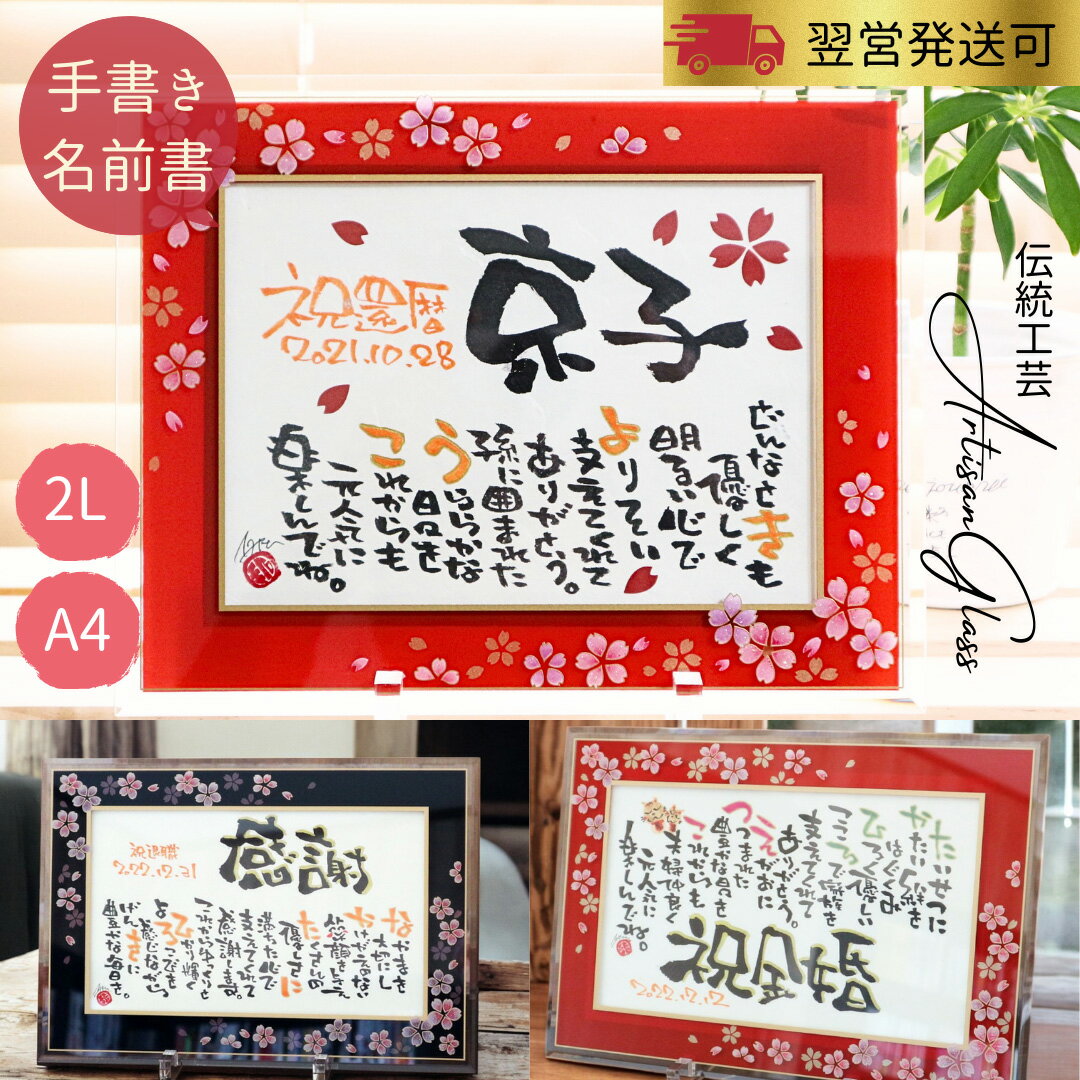 翌営発送可
手書き
名前書
伝統工芸
Artisan Glass
2L
A4
京子
祝還暦
2021.10.28
どんなときも
優しく
明るい心で
よりそい
支えてくれて
ありがとう。
孫に囲まれた
うららかな
日々を
これからも
元気に
楽しんでね。
感謝
祝退職
2022.12.31
なかまを
大切にし
かけがえない
笑顔をささえ
たくさんの
優しさに
満ちた心で
支えてくれて
感謝します。
これからゆっくりと
ひかり輝く
よろこびを
感じながら
げんきに
豊かな毎日を。
はぐくみ
ひろく優しい
こころで家族を
支えてくれて
ありがとう。
えがおに
つつまれた
豊かな日を
これからも
夫婦仲良く
元気に
楽しんでね。
祝金婚
2022.12.12